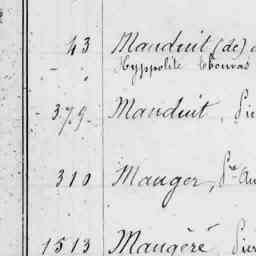 43 Mauduit (de)
Hyppolite Thomas
379. Mauduit,
310 Mauger, Pre Au
1513 Maugéré, Pier